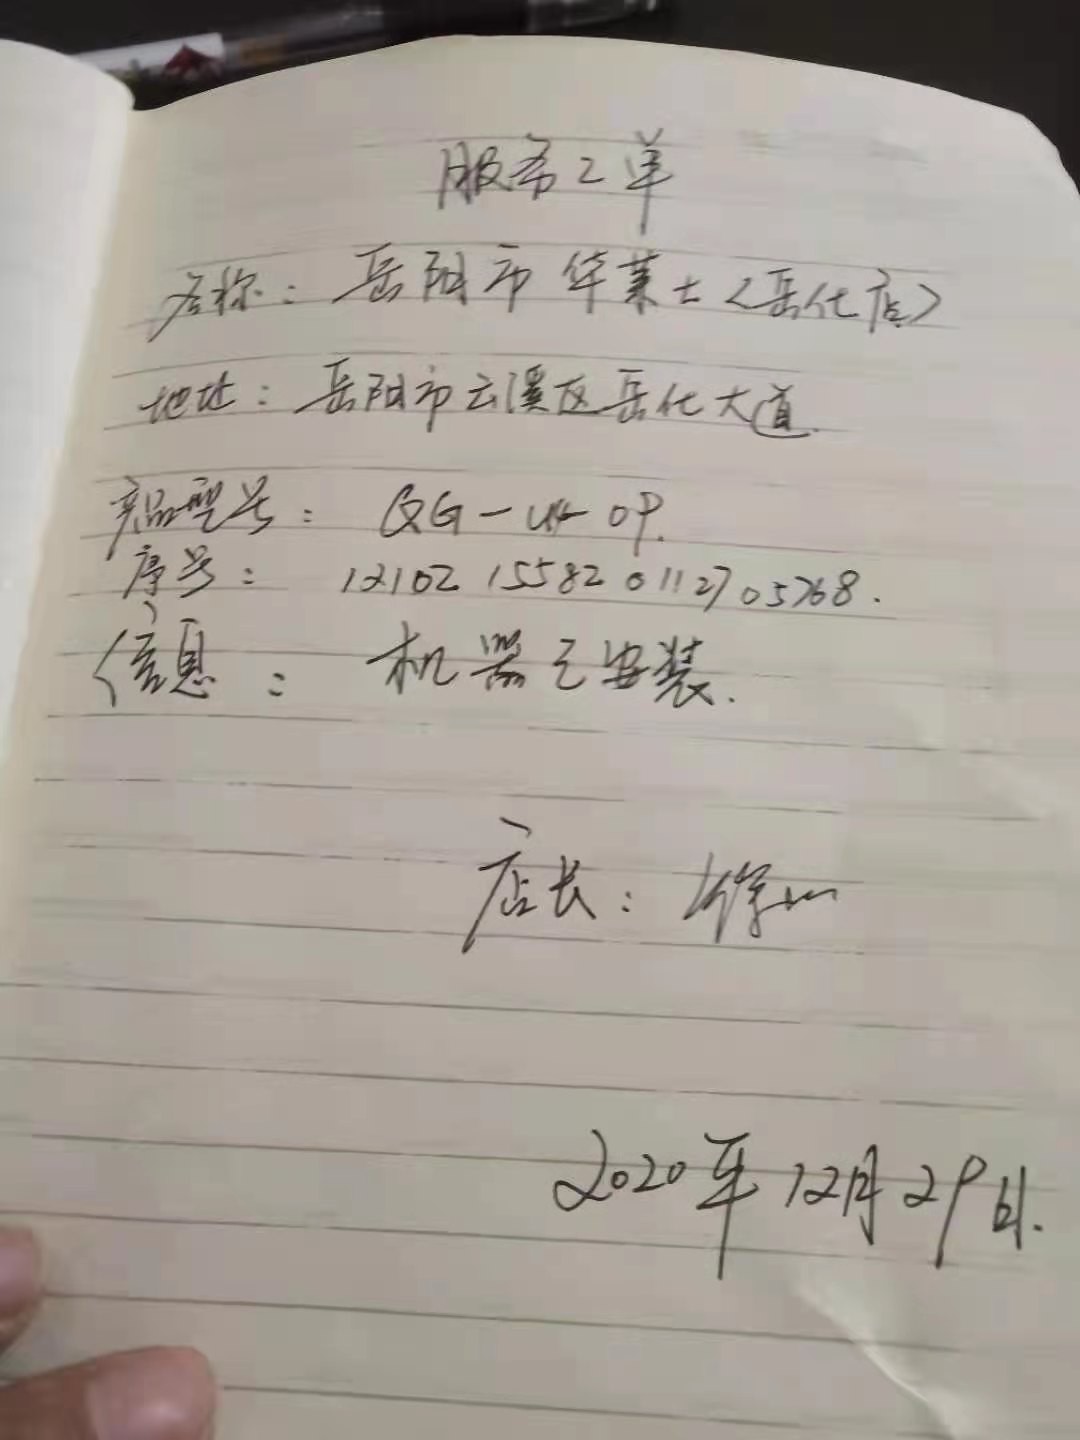 服务工单
名称：岳阳市华莱士<岳化店>
地址：岳阳市云溪区岳化大道.
产品型号：QG-
序号：12102155820112705768.
信息：机器已安装.
店长：徐
2020年12月29日.